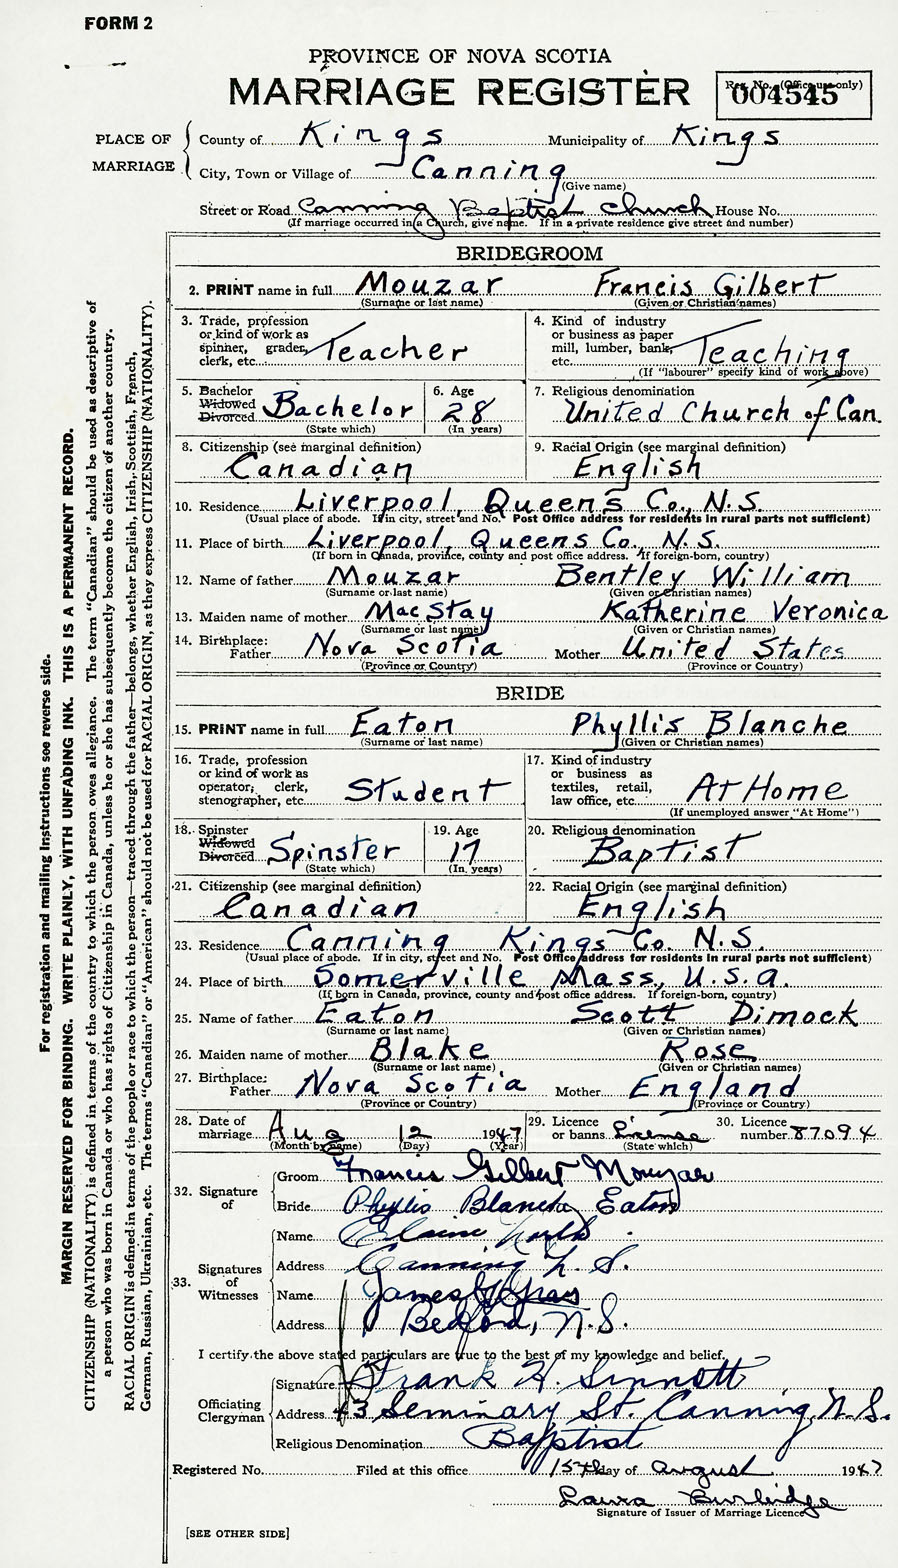 FORM 2
PROVINCE OF NOVA SCOTIA
MARRIAGE REGISTER
Reg. No. (Office use only)
004545
PLACE OF MARRIAGE
County of Kings Municipality of Kings
City, Town or Village of Canning
(Give name)
Street or Road Canning Baptist Church House No.
(If marriage occurred in a Church, give name. If in a private residence give street and number)
BRIDEGROOM
2. PRINT name in full Mouzar Francis Gilbert
(Surname or last name) (Given or Christian names)
3. Trade, profession or kind of work as spinner, grader, clerk, etc. Teacher
4. Kind of industry or business as paper mill, lumber, bank, etc. Teaching
(If "labourer" specify kind of work above)
5. Bachelor Widowed Divorced Bachelor
(State which)
6. Age 28
(In years)
7. Religious denomination
United Church of Can.
8. Citizenship (see marginal definition)
Canadian
9. Racial Origin (see marginal definition)
English
10. Residence Liverpool, Queens Co., N.S.
(Usual place of abode. If in city, street and No. Post Office address for residents in rural parts not sufficient)
11. Place of birth Liverpool, Queens Co. N.S.
(If born in Canada, province, county and post office address. If foreign-born, country)
12. Name of father Mouzar Bentley William
(Surname or last name) (Given or Christian names)
13. Maiden name of mother MacStay Katherine Veronica
(Surname or last name) (Given or Christian names)
14. Birthplace: Father Nova Scotia Mother United States
(Province or Country) (Province or Country)
BRIDE
15. PRINT name in full Eaton Phyllis Blanche
(Surname or last name) (Given or Christian names)
16. Trade, profession or kind of work as operator, clerk, stenographer, etc. Student
17. Kind of industry or business as textiles, retail, law office, etc. At Home
(If unemployed answer "At Home")
18. Spinster Widowed Divorced Spinster
(State which)
19. Age 17
(In years)
20. Religious denomination
Baptist
21. Citizenship (see marginal definition)
Canadian
22. Racial Origin (see marginal definition)
English
23. Residence Canning Kings Co. N.S.
(Usual place of abode. If in city, street and No. Post Office address for residents in rural parts not sufficient)
24. Place of birth Somerville Mass, U.S.A.
(If born in Canada, province, county and post office address. If foreign-born, country)
25. Name of father Eaton Scott Dimock
(Surname or last name) (Given or Christian names)
26. Maiden name of mother Blake Rose
(Surname or last name) (Given or Christian names)
27. Birthplace: Father Nova Scotia Mother England
(Province or Country) (Province or Country)
28. Date of marriage Aug 12 1947
(Month by name) (Day) (Year)
29. Licence or banns License
(State which)
30. Licence number 87094
32. Signature of
Groom Francis Gilbert Mouzar
Bride Phyllis Blanche Eaton
33. Signatures of Witnesses
Name Elaine North
Address Canning N.S.
Name James
Address Bedford, N.S.
I certify the above stated particulars are true to the best of my knowledge and belief.
Officiating Clergyman
Signature Frank H. Sinnott
Address 43 Seminary St. Canning, N.S.
Religious Denomination Baptist
Registered No. Filed at this office 15th day of August 1947
Laura Burbidge
Signature of Issuer of Marriage Licence
[SEE OTHER SIDE]
For registration and mailing instructions see reverse side.
MARGIN RESERVED FOR BINDING. WRITE PLAINLY, WITH UNFADING INK. THIS IS A PERMANENT RECORD.
CITIZENSHIP (NATIONALITY) is defined in terms of the country to which the person owes allegiance. The term "Canadian" should be used as descriptive of
a person who was born in Canada or who has rights of Citizenship in Canada, unless he or she has subsequently become the citizen of another country.
RACIAL ORIGIN is defined in terms of the people or race to which the person—traced through the father—belongs, whether English, Irish, Scottish, French,
German, Russian, Ukrainian, etc. The terms "Canadian" or "American" should not be used for RACIAL ORIGIN, as they express CITIZENSHIP (NATIONALITY).